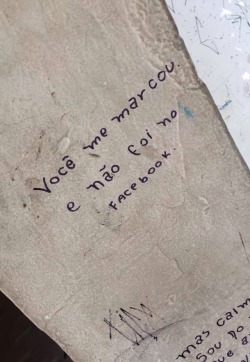 Você me marcou.
e não foi no
FACEbook.
mas calm
sou po